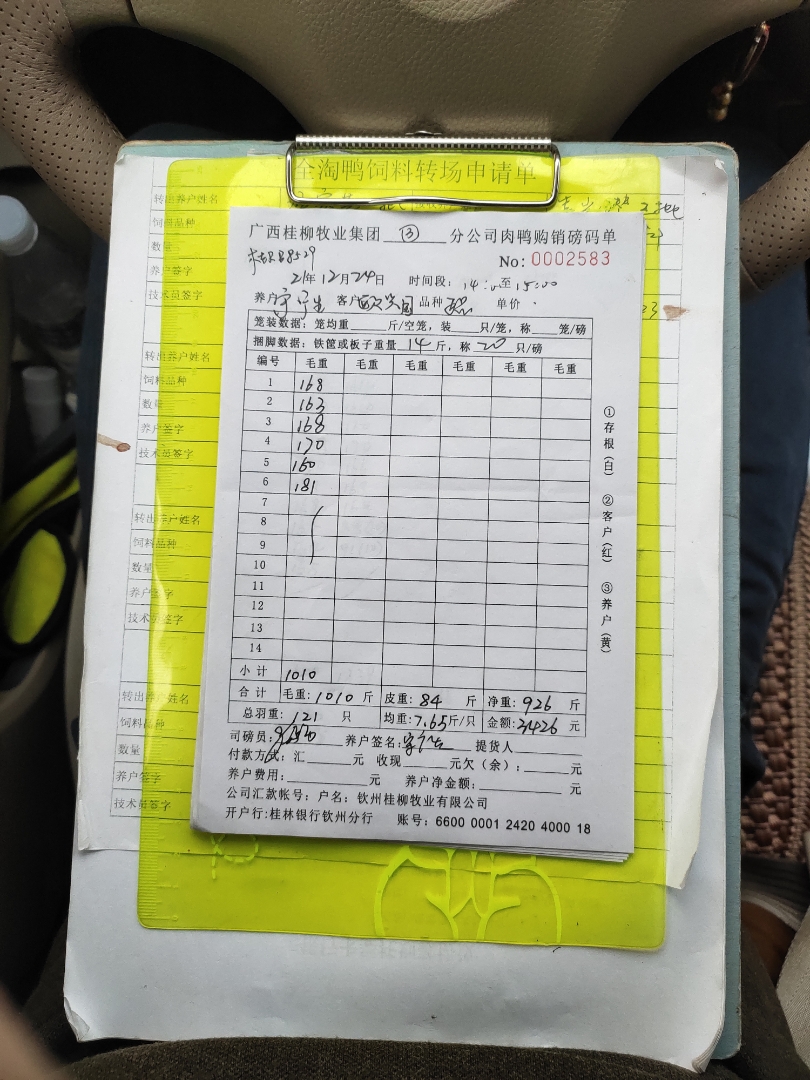 全淘鸭饲料转场申请单
转出养户姓名
饲料品种
数量
养户签字
技术员签字
转出养户姓名
饲料品种
数量
养户签字
技术员签字
转出养户姓名
饲料品种
数量
养户签字
技术员签字
转出养户姓名
饲料品种
数量
养户签字
技术员签字
广西桂柳牧业集团 ③ 分公司肉鸭购销磅码单
No: 0002583
21年12月24日 时间段: 14:0至15:00
养户 客户 品种 单价
笼装数据: 笼均重 斤/空笼, 装 只/笼, 称 笼/磅
捆脚数据: 铁筐或板子重量 14 斤, 称 20 只/磅
编号 毛重 毛重 毛重 毛重 毛重 毛重
1 168
2 163
3 168
4 170
5 160
6 181
7
8
9
10
11
12
13
14
小计 1010
合计 毛重: 1010 斤 皮重: 84 斤 净重: 926 斤
总羽重: 121 只 均重: 7.65斤/只 金额: 2426 元
司磅员: 养户签名: 提货人
付款方式: 汇 元 收现 元欠(余): 元
养户费用: 元 养户净金额: 元
公司汇款帐号: 户名: 钦州桂柳牧业有限公司
开户行:桂林银行钦州分行 账号: 6600 0001 2420 4000 18
①存根(白) ②客户(红) ③养户(黄)